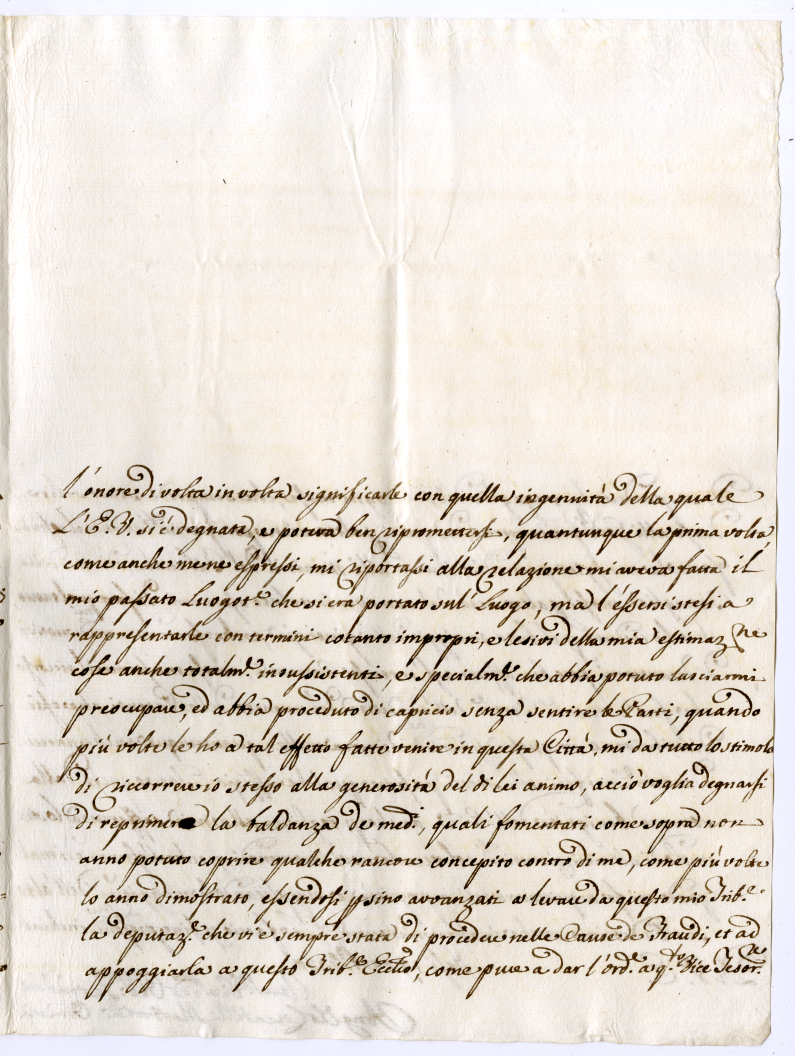 l'onore di volta in volta significarle con quella ingennità della quale
L'E.V. si è degnata, e poterà ben ripromettersi, quantunque la prima volta,
come anche mene espressi, mi riportassi alla relazione mi aveva fatta il
mio passato Luogot.e che si era portato sul Luogo, ma l'essersi stesi a
rappresentarle con termini cotanto impropri, e lesivi della mia estimaz.ne
cose anche totalm.e insussistenti, e specialm.e che abbia potuto lasciarmi
preocupare, ed abbia proceduto di capricio senza sentire le Parti, quando
più volte le ho a tal effetto fatte venire in questa Città, mi da tutto lo stimolo
di riccorrere io stesso alla generosità del di lei animo, acciò voglia degnarsi
di reprimere la baldanza de med.i, quali fomentati come sopra non
anno potuto coprire qualche rancore concepito contro di me, come più volte
lo anno dimostrato, essendosi persino avvanzati a levare da questo mio Trib.e
la deputaz.e che vi è sempre stata di procedere nelle Cause de Fraudi, et ad
appoggiarla a questo Trib.e Eccl.co, come pure a dar l'ord.e a q.to Vice Tesor.re